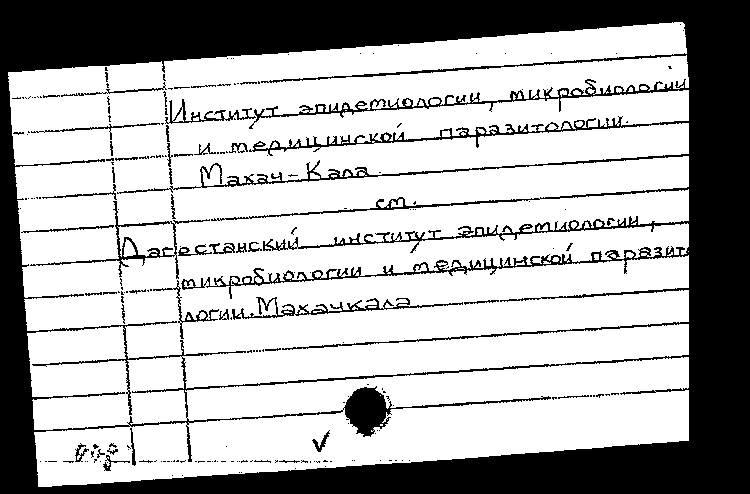 Институт эпидемиологии, микробиологии
и медицинской паразитологии.
Махач-Кала
см.
Дагестанский институт эпидемиологии,
микробиологии и медицинской паразито
логии. Махачкала